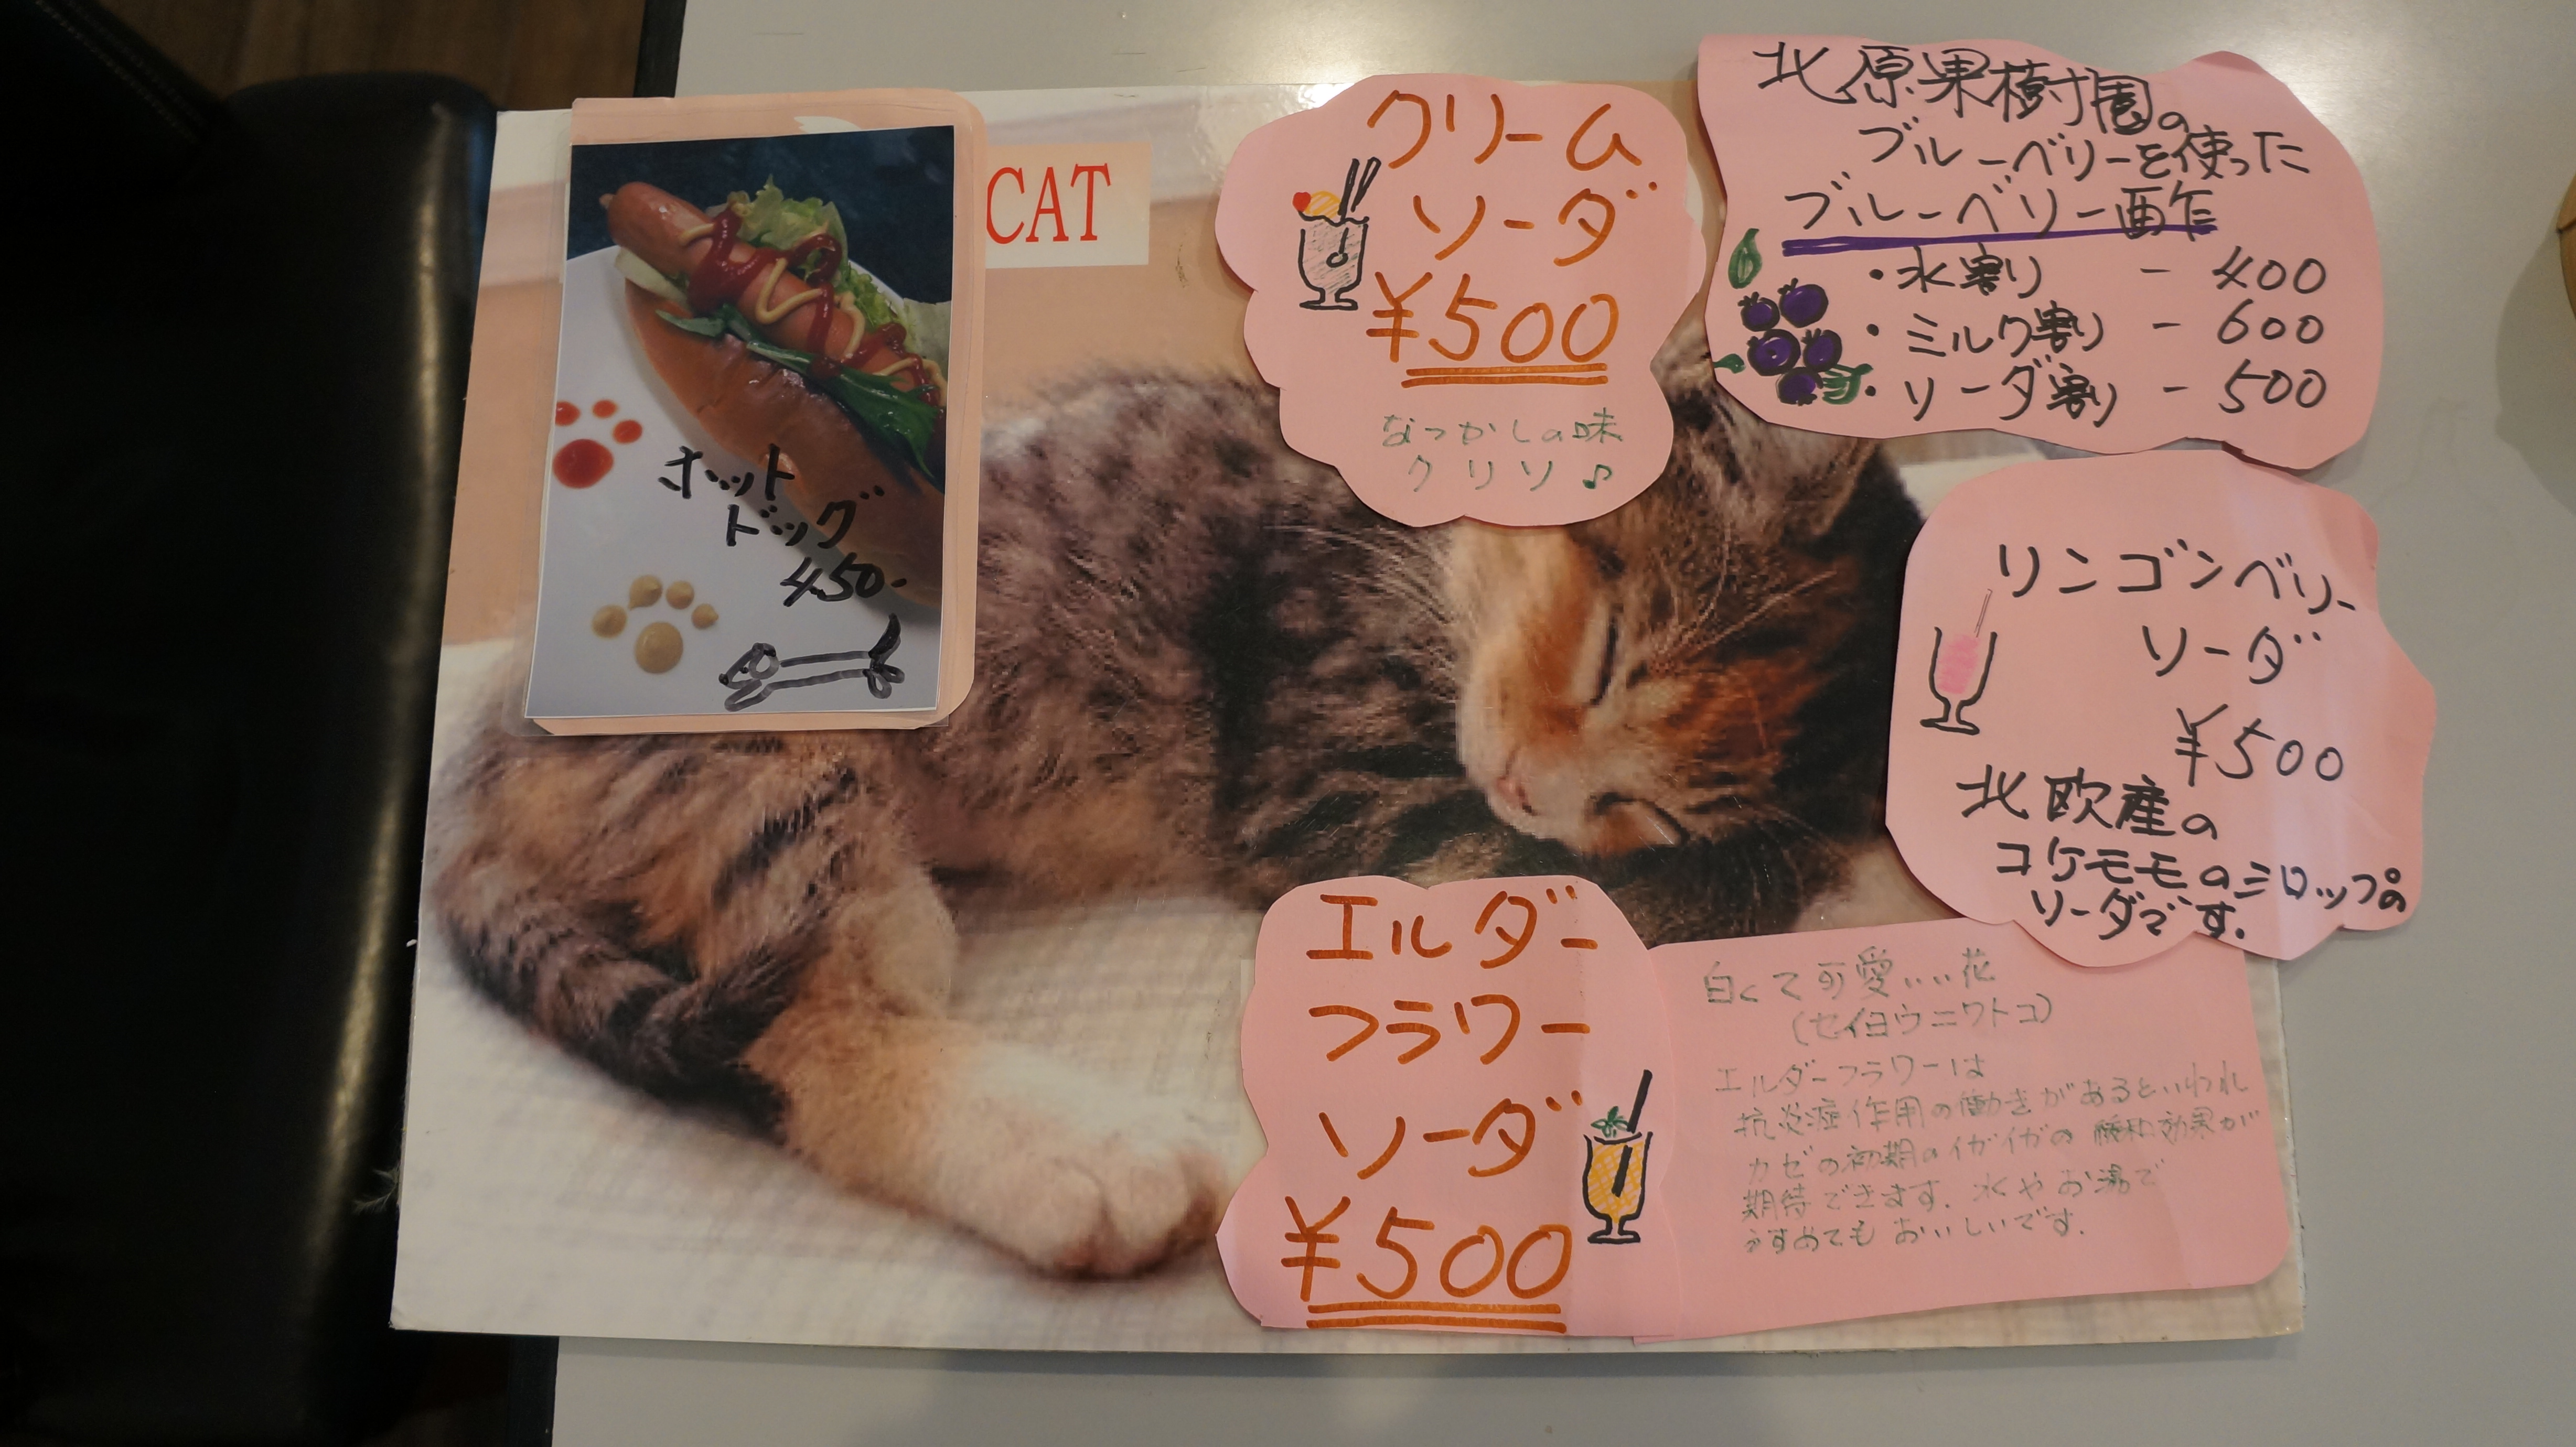 CAT
ホット
ドッグ
450-
クリーム
ソーダ
¥500
なつかしの味
クリソ♪
北原果樹園の
ブルーベリーを使った
ブルーベリー酢
・水割り - 400
・ミルク割り - 600
・ソーダ割り - 500
リンゴンベリー
ソーダ
¥500
北欧産の
コケモモのシロップの
ソーダです.
エルダー
フラワー
ソーダ
¥500
白くて可愛いい花
(セイヨウニワトコ)
エルダーフラワーは
抗炎症作用の働きがあるといわれ
カゼの初期のイガイガの緩和効果が
期待できます. 水やお湯で
うすめてもおいしいです.